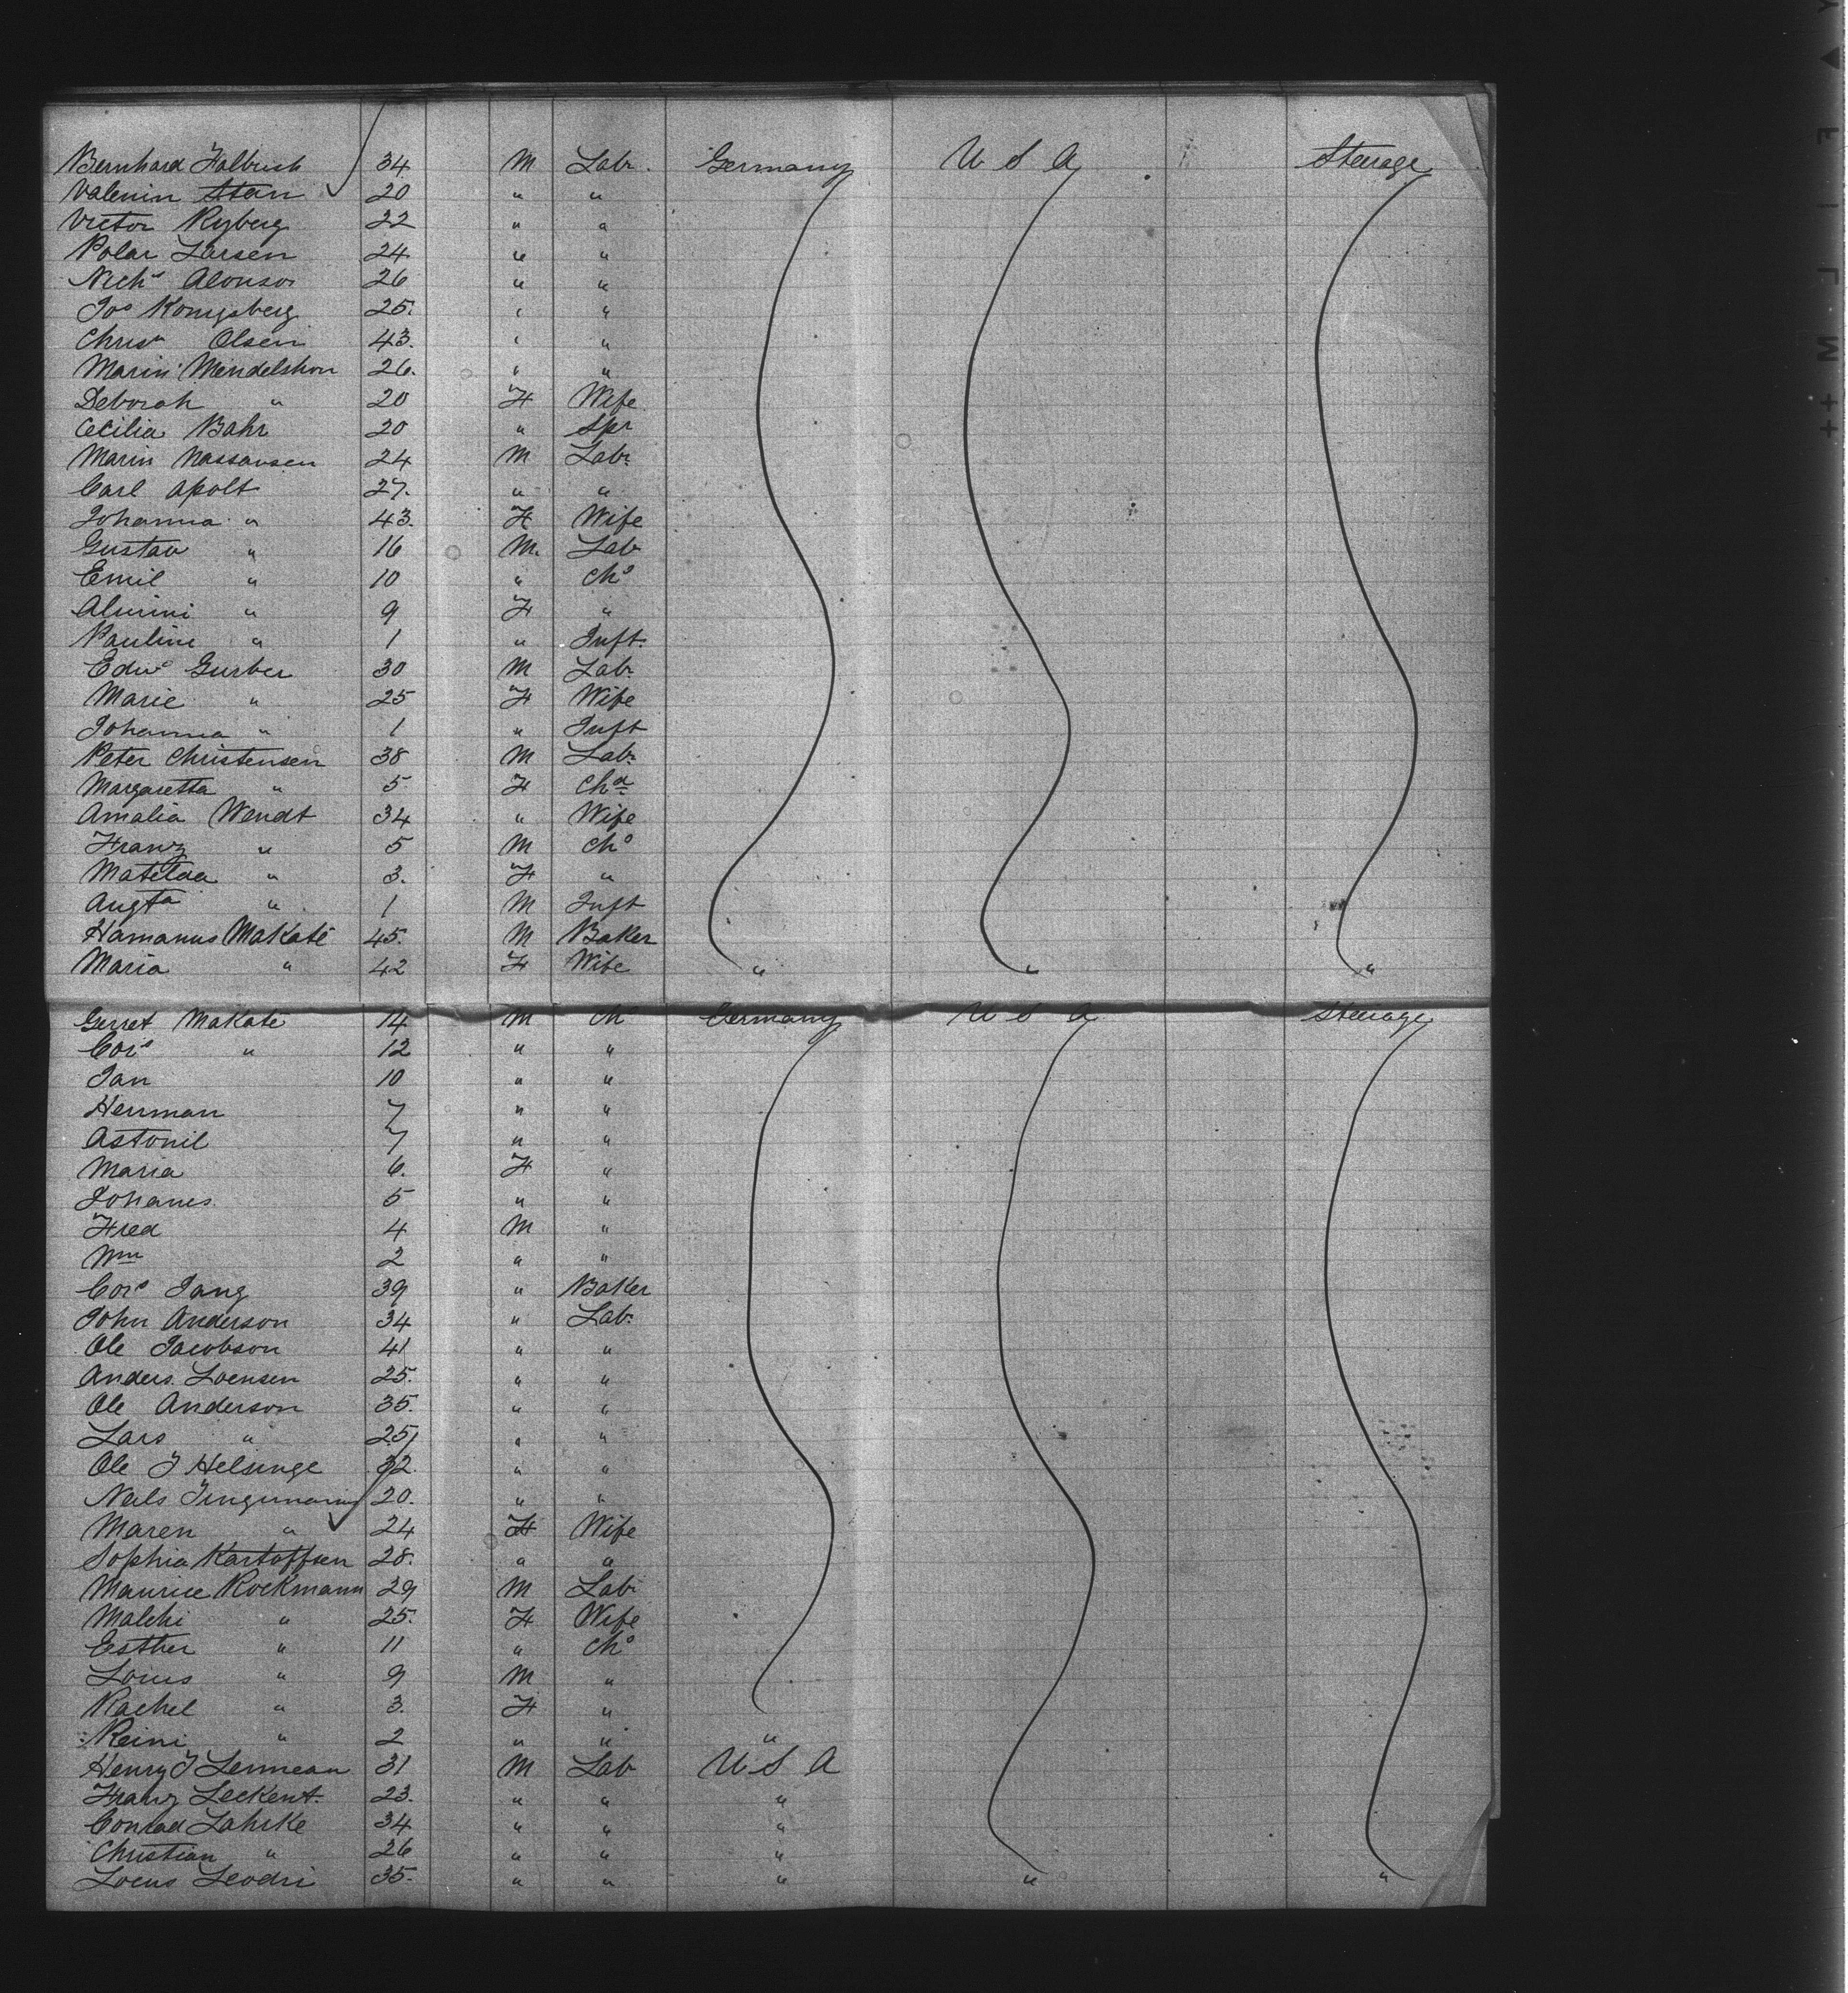 Bernhard Halbrich 34 M Lab. Germany U S A Steerage
Valenin Stan 20 " "
Victor Ryberg 22 " "
Polar Larsen 24 " "
Nichs Alonsos 26 " "
Jos Konigsberg 25. " "
Chrisn Olsen 43. " "
Marin Mendelshon 26. " "
Deborah " 20 F Wife
Cecilia Bahr 20 " Spr
Marin Nassausen 24 M Lab.
Carl Apolt 27. " "
Johanna " 43. F Wife
Gustav " 16 M. Lab
Emil " 10 " Chd
Alwini " 9 F "
Pauline " 1 " Inft.
Edwd Gurber 30 M Lab.
Marie " 25 F Wife
Johanna " 1 " Inft
Peter Christensen 38 M Lab.
Margaretta " 5 F Chd
Amalia Wendt 34 " Wife
Franz " 5 M Chd
Matilda " 3. F "
Augta " 1 M Inft
Hamanus Makaté 45. M Baker
Maria " 42 F Wife " " "
Gerret Makaté 14 M Ch Germany U S A Steerage
Cors " 12 " "
Jan 10 " "
Herrman 7 " "
Astonil 7 " "
Maria 6. F "
Johanes 5 " "
Fred 4 M "
Wm 2 " "
Cors Jang 39 " Baker
John Anderson 34 " Lab.
Ole Jacobson 41 " "
Anders. Loensen 25. " "
Ole Anderson 35. " "
Lars " 25 " "
Ole J Helsinge 32. " "
Neils Jingumann 20. " "
Maren " 24 F Wife
Sophia Kartoffsen 28. " "
Maurice Rockmann 29 M Lab.
Malchi " 25. F Wife
Esther " 11 " Chd
Louis " 9 M "
Rachel " 3. F "
Reini " 2 " " "
Henry J Lenneau 31 M Lab U S A
Franz Leckent. 23. " " "
Conrad Lahrke 34 " " "
Christian " 26 " " "
Locus Leodri 35. " " " " "